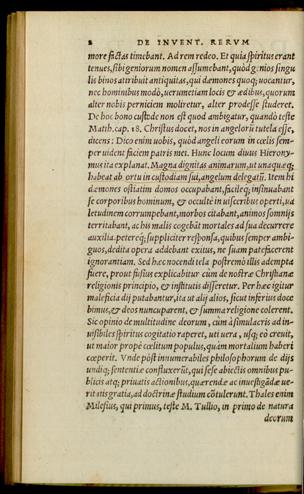 2 DE INVENT. RERVM
more factas timebant. Ad rem redeo. Et quia spiritus erant
tenues, sibi geniorum nomen assumebant, quòd genios singu
lis binos attribuit antiquitas, qui dæmones quoq; uocantur,
nec hominibus modò, uerumetiam locis & ædibus, quorum
alter nobis perniciem moliretur, alter prodesse studeret.
De hoc bono custode non est quòd ambigatur, quando teste
Matth. cap. 18. Christus docet, nos in angelorū tutela esse,
dicens: Dico enim uobis, quòd angeli eorum in cœlis sem-
per uident faciem patris mei. Hunc locum diuus Hierony-
mus ita explanat. Magna dignitas animarum, ut unaquæq;
habeat ab ortu in custodiam sui, angelum delegatū. Item hi
dæmones ostiatim domos occupabant, facileq; insinuabant
se corporibus hominum, & occultè in uisceribus operti, ua
letudinem corrumpebant, morbos citabant, animos somnijs
territabant, ac his malis cogebāt mortales ad sua decurrere
auxilia. petereq; suppliciter responsa, quibus semper ambi-
guos, dedita opera addebant exitus, ne suam patefacerent
ignorantiam. Sed hæc nocendi tela postremò illis adempta
fuere, prout fusius explicabitur cùm de nostræ Christianæ
religionis principio, & institutis disseretur. Per hæc igitur
maleficia dij putabantur, ita ut alij alios, sicut inferius doce
bimus, & deos nuncuparent, & summa religione colerent.
Sic opinio de multitudine deorum, cùm à simulacris ad in-
uisibiles spiritus cogitatio raperet, uti uera, usq; eò creuit,
ut maior propè cœlitum populus, quàm mortalium haberi
cœperit. Vnde pòst innumerabiles philosophorum de dijs
undiq; sententiæ confluxerūt, qui sese abiectis omnibus pu-
blicis atq; priuatis actionibus, quærendæ ac inuestigādæ ue-
ritatis gratia, ad doctrinæ studium cōtulerunt. Thales enim
Milesius, qui primus, teste M. Tullio, in primo de natura
deorum